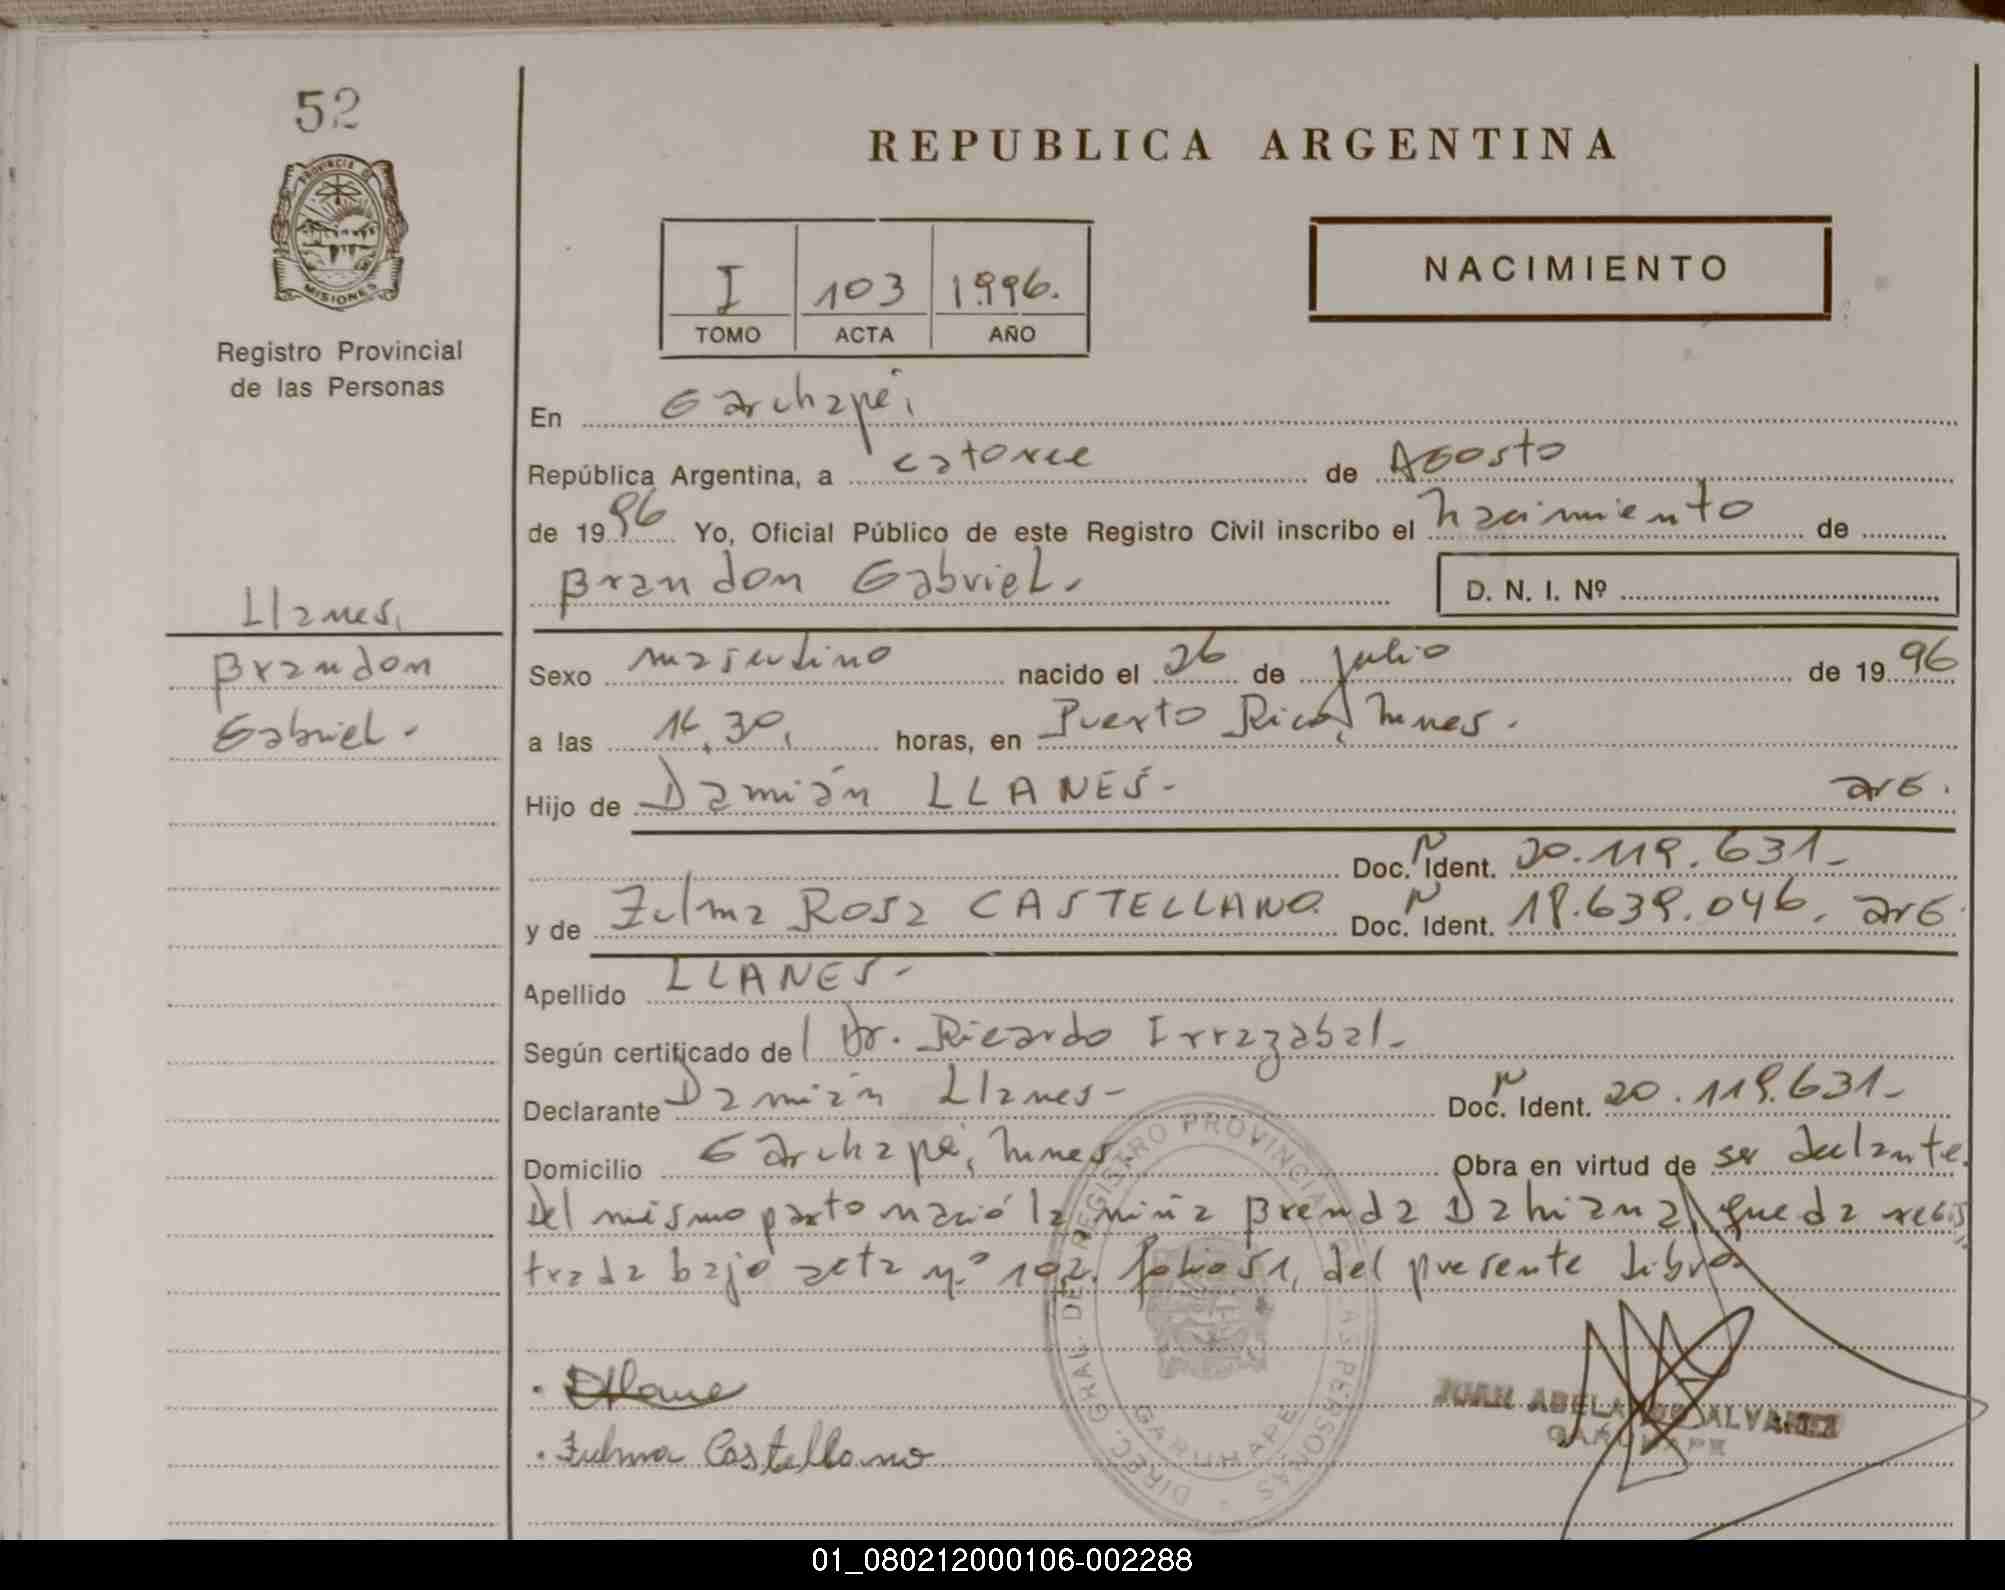 52
REPUBLICA ARGENTINA
PROVINCIA DE
MISIONES
Registro Provincial
de las Personas
NACIMIENTO
I 103 1996.
TOMO ACTA AÑO
En Garuhapé,
República Argentina, a catorce de Agosto
de 1996 Yo, Oficial Público de este Registro Civil inscribo el nacimiento de
Brandon Gabriel.
D. N. I. Nº
Llanes,
Brandon
Gabriel.
Sexo masculino nacido el 26 de julio de 1996
a las 16,30, horas, en Puerto Rico, Mnes.
Hijo de Damián LLANES- arg.
Doc. N Ident. 20.119.631-
y de Zulma Rosa CASTELLANO Doc. N Ident. 18.639.046. arg.
Apellido LLANES-
Según certificado de Dr. Ricardo Irrazabal-
Declarante Damián Llanes- Doc. N Ident. 20.119.631-
Domicilio Garuhapé, Mnes Obra en virtud de ser declante.
Del mismo parto nació la niña Brenda Dahiana, queda regis
trada bajo acta n.º 102. folio 51, del presente libro
DIREC. GRAL. DE REGISTRO PROVINCIAL DE LAS PERSONAS
GARUHAPE
JUAN ABELARDO ALVAREZ
GARUHAPE
Zulma Castellano
01_080212000106-002288